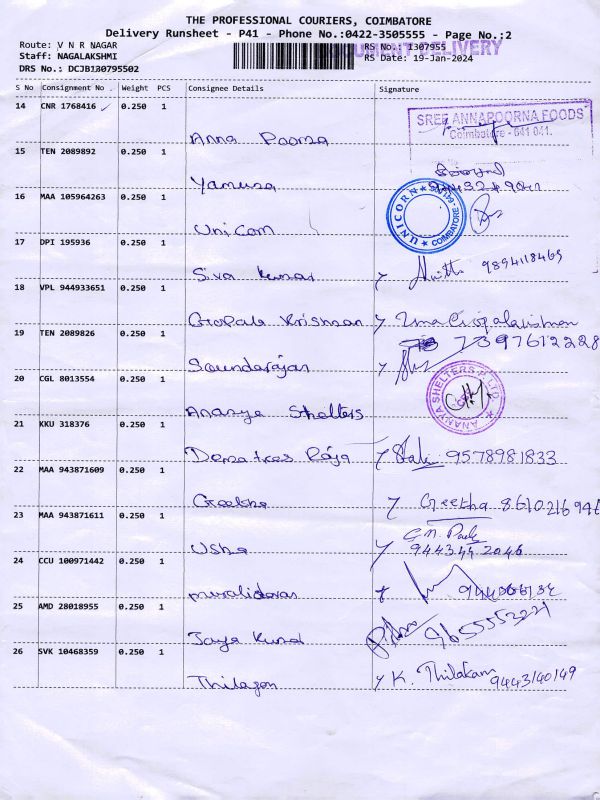 THE PROFESSIONAL COURIERS, COIMBATORE
Delivery Runsheet - P41 - Phone No.:0422-3505555 - Page No.:2
Route: V N R NAGAR RS No.: 1307955
Staff: NAGALAKSHMI RS Date: 19-Jan-2024
DRS No.: DCJB130795502
DELIVERY
S No Consignment No . Weight PCS Consignee Details Signature
14 CNR 1768416 0.250 1
SREE ANNAPOORNA FOODS
Coimbatore - 641 041.
Anna Poorna
15 TEN 2089892 0.250 1
Yamuna
16 MAA 105964263 0.250 1
UNICORN COIMBATORE
Unicom
17 DPI 195936 0.250 1
Siva Kumar 9894118469
18 VPL 944933651 0.250 1
Gopala Krishnan Uma Gopalakrishnan
19 TEN 2089826 0.250 1 7397612228
Soundarajan
20 CGL 8013554 0.250 1
ANANYA SHELTERS P LTD.
Ananya Shelters
21 KKU 318376 0.250 1
Raja 9578981833
22 MAA 943871609 0.250 1
Geetha Geetha
23 MAA 943871611 0.250 1
Usha
24 CCU 100971442 0.250 1
muralidaran
25 AMD 28018955 0.250 1
Jaya
26 SVK 10468359 0.250 1
K. Thilakam 9443140149